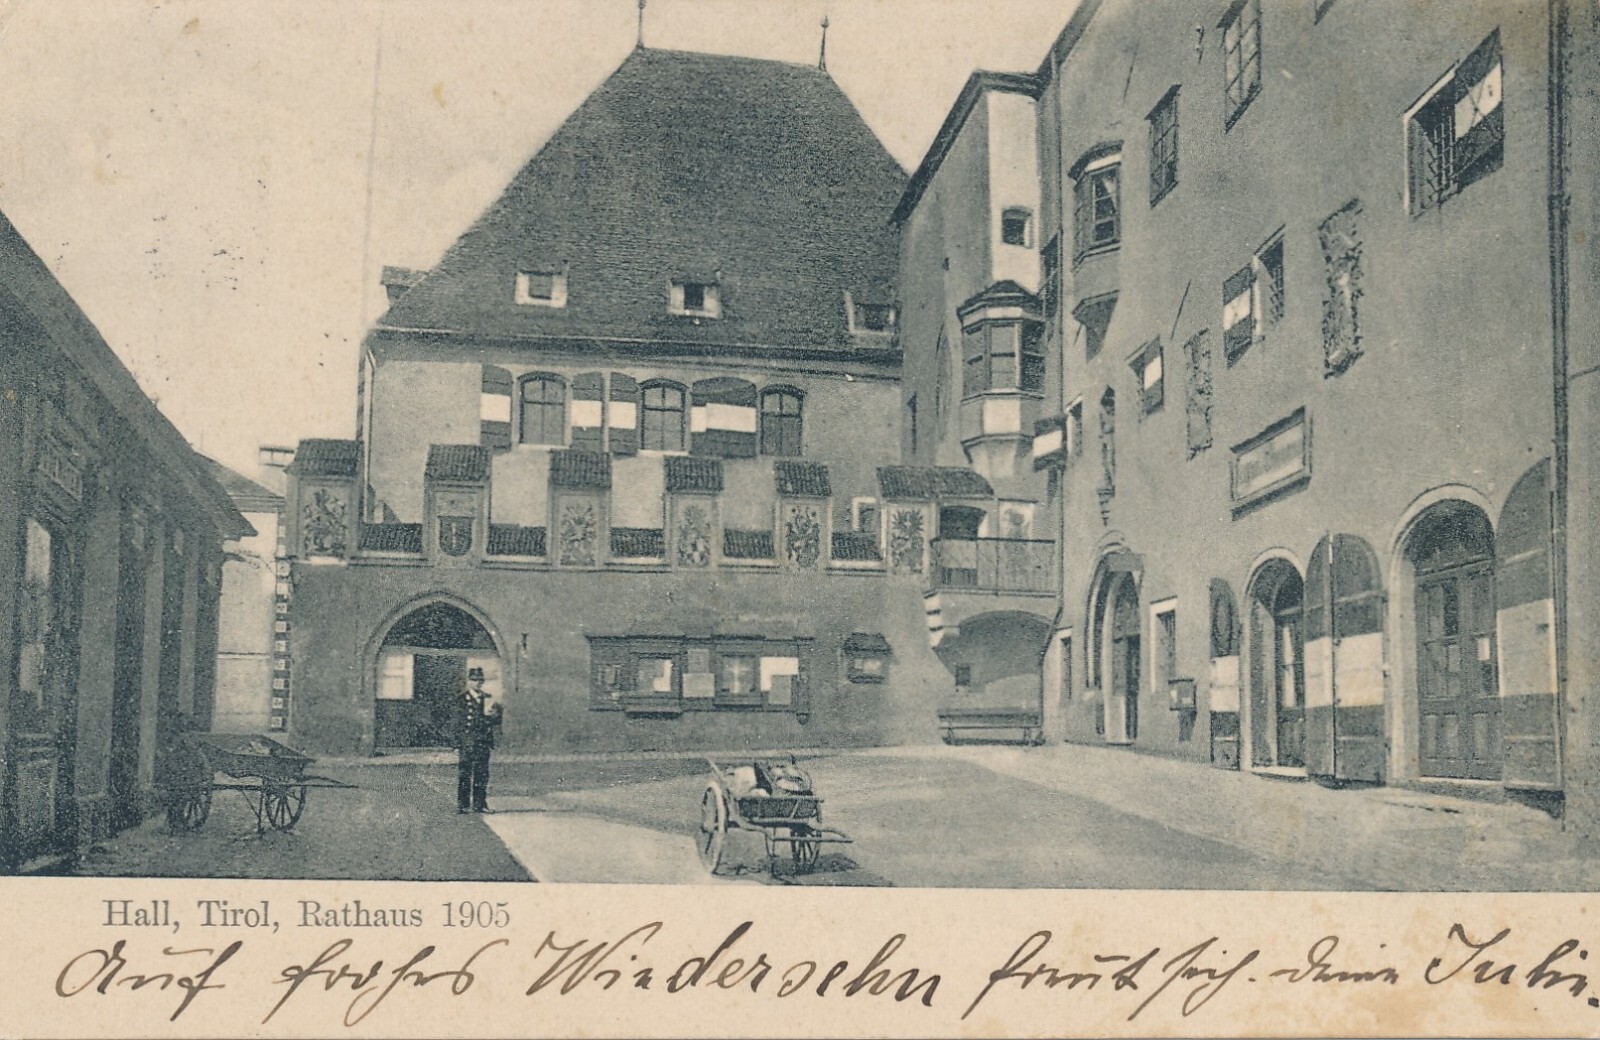 Hall, Tirol, Rathaus 1905
Auf frohes Wiedersehn freut sich. deine Julie.